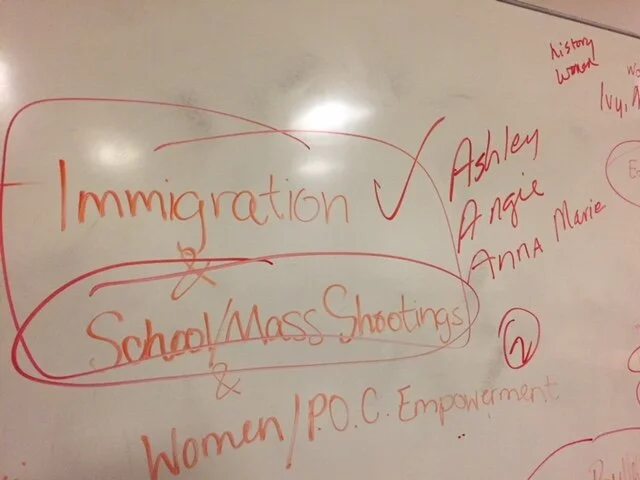 history
women
Ivy,
Immigration
Ashley
Angie
Anna Marie
&
School/Mass Shootings
&
2
Women/P.O.C. Empowerment